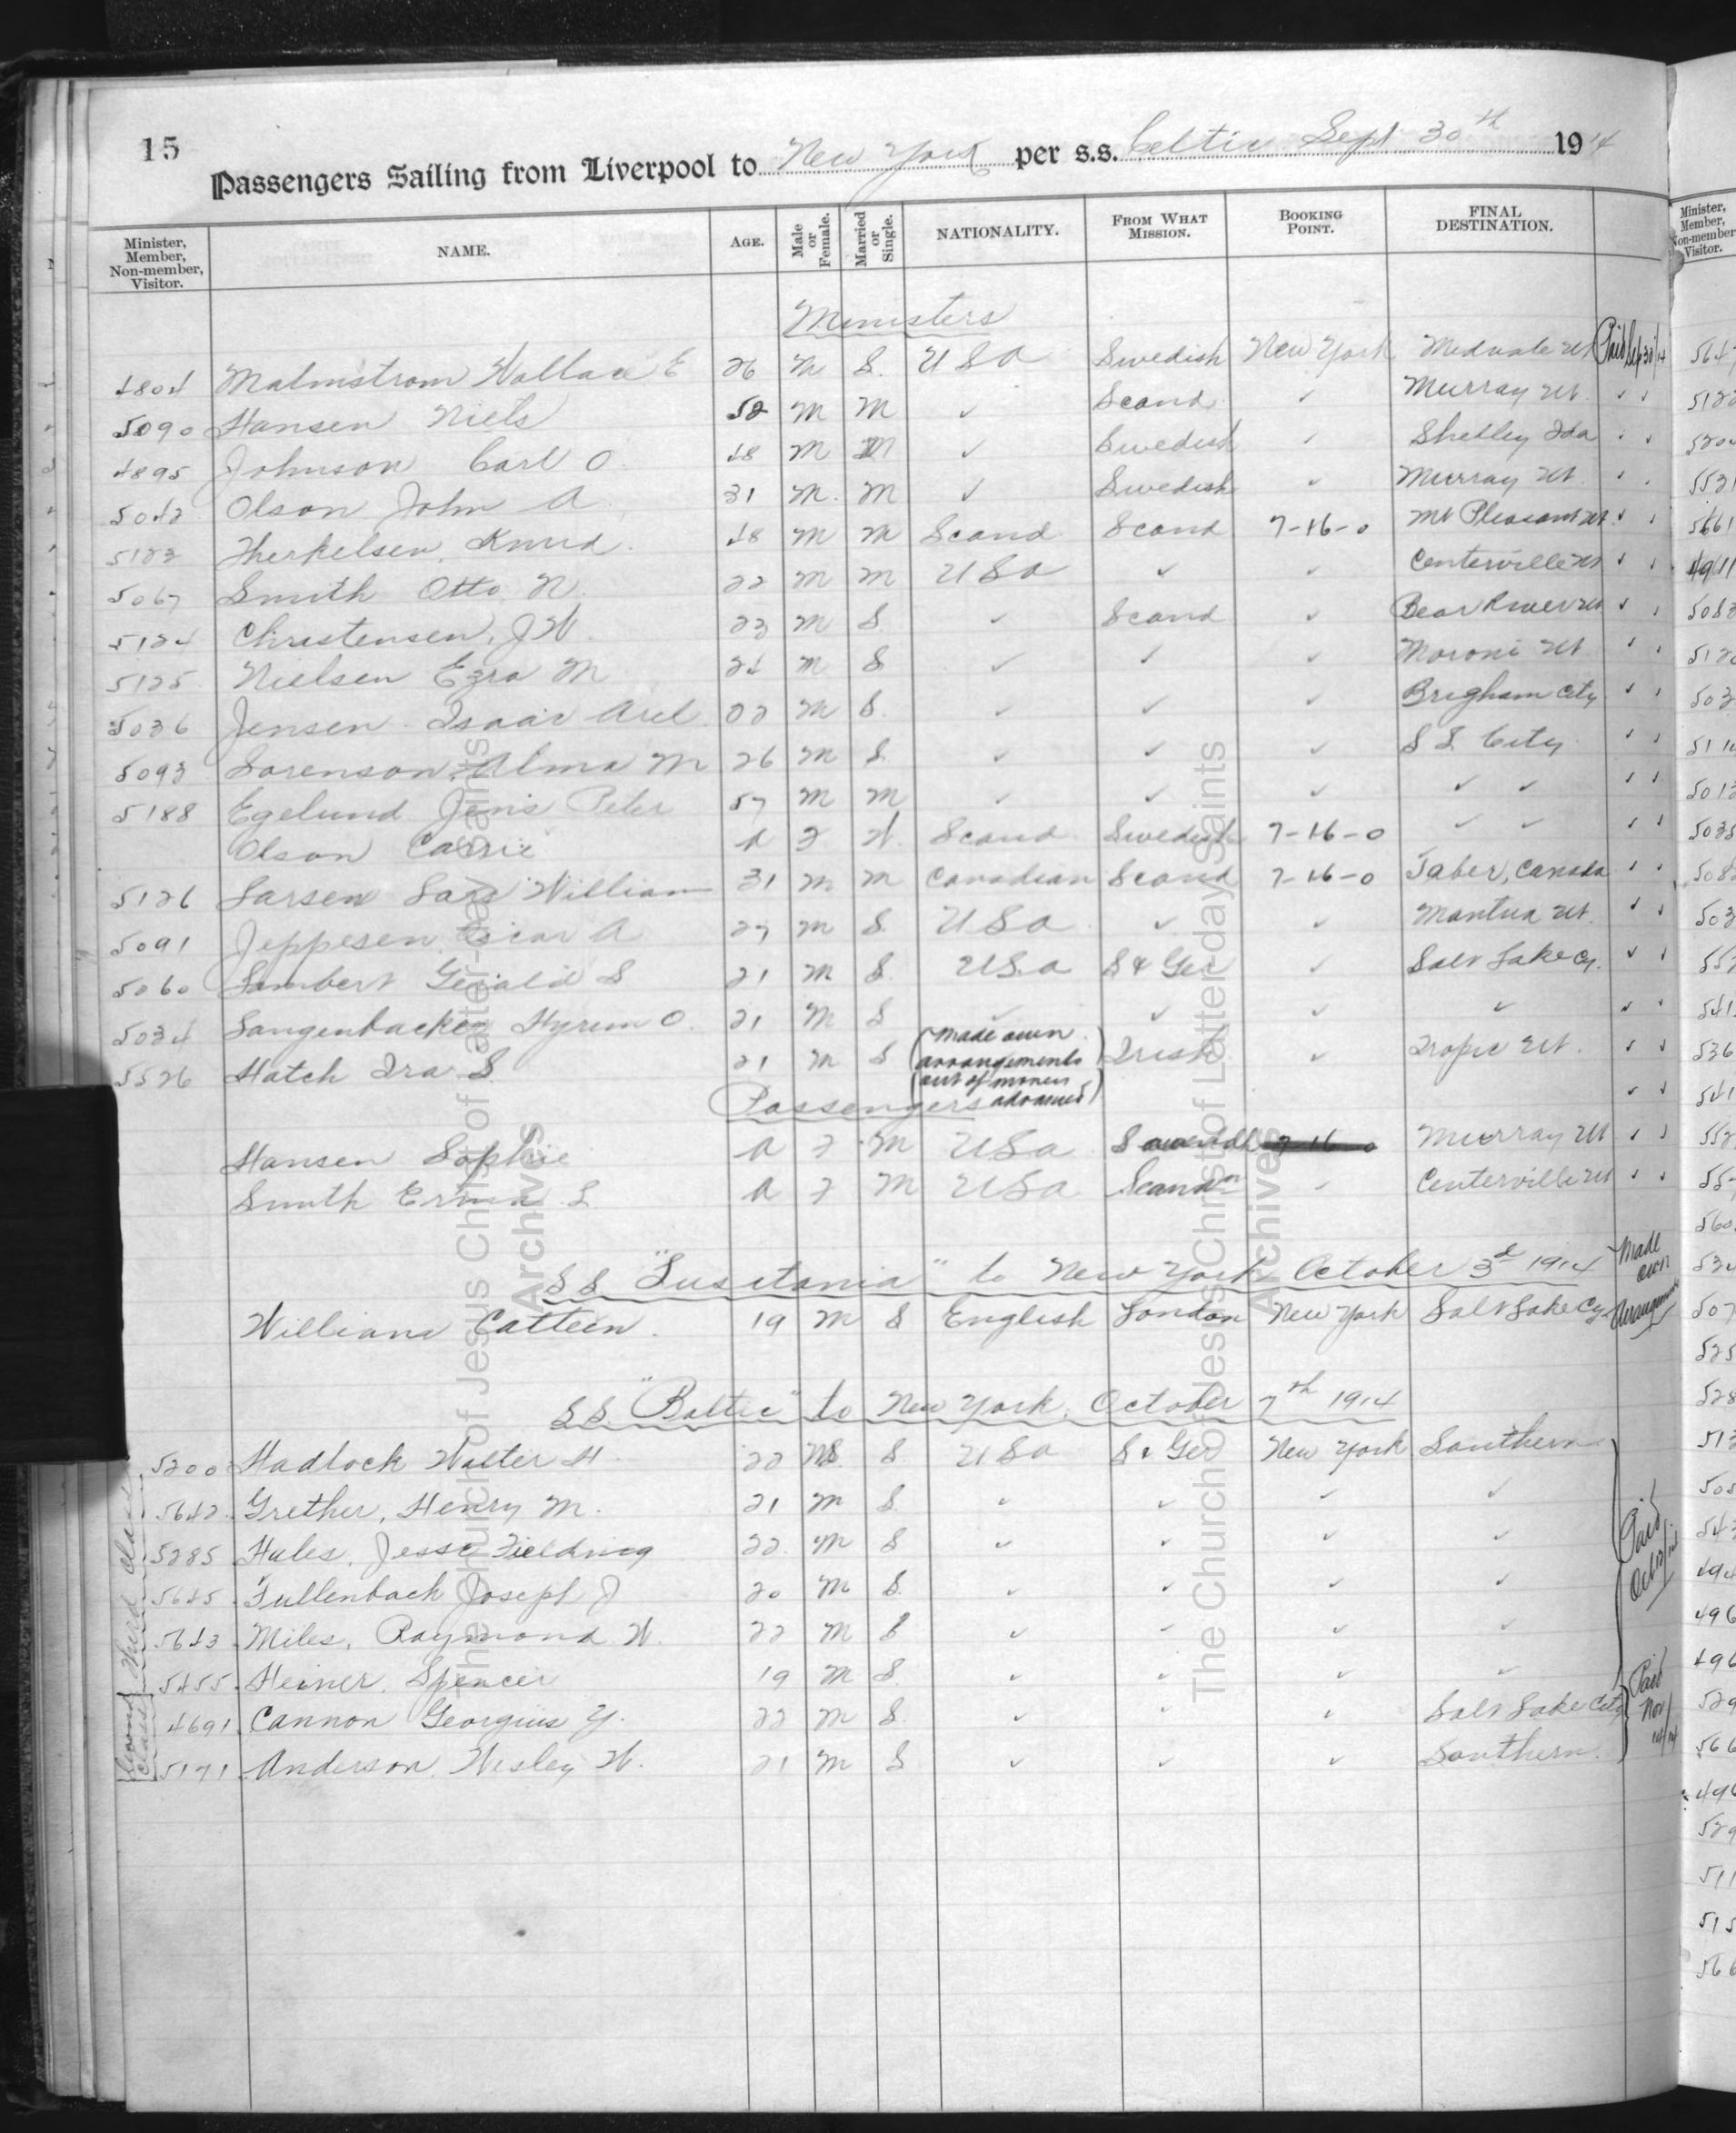 15
Passengers Sailing from Liverpool to New York per s.s. Celtic Sept 30th 1914
Minister, Member, Non-member, Visitor. NAME. AGE. Male or Female. Married or Single. NATIONALITY. FROM WHAT MISSION. BOOKING POINT. FINAL DESTINATION.
Ministers
4804 Malmstrom Wallace E 26 M S. USA Swedish New York Midvale Ut Paid Sep 30/14
5090 Hansen Niels 52 M M ✓ Scand ✓ Murray Ut. ✓ ✓
4895 Johnson Carl O. 48 M M ✓ Swedish ✓ Shelley Ida ✓ ✓
5042 Olson John A 31 M. M ✓ Swedish ✓ Murray Ut. ✓ ✓
5123 Therkelsen, Knud. 48 M M Scand Scand 7-16-0 Mt Pleasant Ut. ✓ ✓
5067 Smith Otto N. 22 M M USA ✓ ✓ Centerville Ut ✓ ✓
5124 Christensen, J W. 23 M S. ✓ Scand ✓ Bear River Ut ✓ ✓
5125 Nielsen Ezra M 24 M S ✓ ✓ ✓ Moroni Ut ✓ ✓
5036 Jensen Isaac Axel 22 M S. ✓ ✓ ✓ Brigham City ✓ ✓
5093 Sorenson, Alma M 26 M S. ✓ ✓ ✓ S L City ✓ ✓
5188 Egelund Jens Peter 57 M M ✓ ✓ ✓ ✓ ✓ ✓ ✓
Olson Carrie A F W. Scand Swedish 7-16-0 ✓ ✓ ✓ ✓
5126 Larsen Lars William 31 M M Canadian Scand 7-16-0 Taber, Canada ✓ ✓
5091 Jeppesen, Oscar A 27 M S. USA ✓ ✓ Mantua Ut. ✓ ✓
5060 Lambert Gerald S 21 M S. USA S & Ger ✓ Salt Lake Cy. ✓ ✓
5034 Langenbacker Hyrum O. 21 M S ✓ ✓ ✓ ✓ ✓ ✓
5526 Hatch Ira S. 21 M S (Made own arrangements out of money advanced) Irish ✓ Tropic Ut. ✓ ✓
Passengers ✓ ✓
Hansen Sophie A F M USA 7-16-0 Murray Ut ✓ ✓
Smith Erma L A F M USA Scandn ✓ Centerville Ut ✓ ✓
SS "Lusitania" to New York October 3d 1914
Williams Catteen. 19 M S English London New York Salt Lake Cy. Made own Arrangements
SS. "Baltic" to New York, October 7th 1914
Third Class
5200 Hadlock Walter H. 22 M S USA S & Ger New York Southern
5642 Grether, Henry M. 21 M S. ✓ ✓ ✓ ✓
5285 Hales, Jesse Fielding 22 M S ✓ ✓ ✓ ✓
5645 Fullenbach Joseph J 20 M S. ✓ ✓ ✓ ✓
5643 Miles, Raymond W. 22 M S ✓ ✓ ✓ ✓
5455 Heiner, Spencer 19 M S ✓ ✓ ✓ ✓
Second Class
4691 Cannon Georgius Y. 22 M S. ✓ ✓ ✓ Salt Lake City
5171 Anderson, Wesley W. 21 M S ✓ ✓ ✓ Southern.
Paid
Paid Nov
The Church of Jesus Christ of Latter-day Saints
Archives
The Church of Jesus Christ of Latter-day Saints
Archives
Minister, Member, Non-member Visitor.